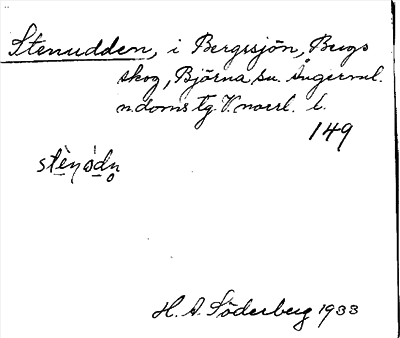 Stenudden, i Bergsjön, Bergs
skog, Björna sn. Ångerml.
n. doms tg. V. norrl. l.
149
H. A. Söderberg 1933